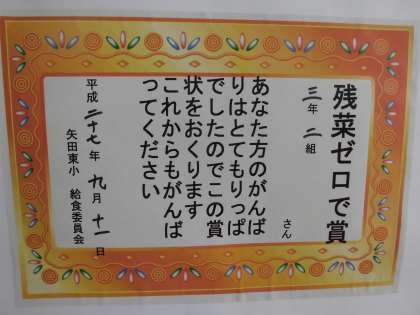 残菜ゼロで賞
三年 二組
さん
あなた方のがんば
りはとてもりっぱ
でしたのでこの賞
状をおくります
これからもがんば
ってください
平成二十七年九月十一日
矢田東小 給食委員会